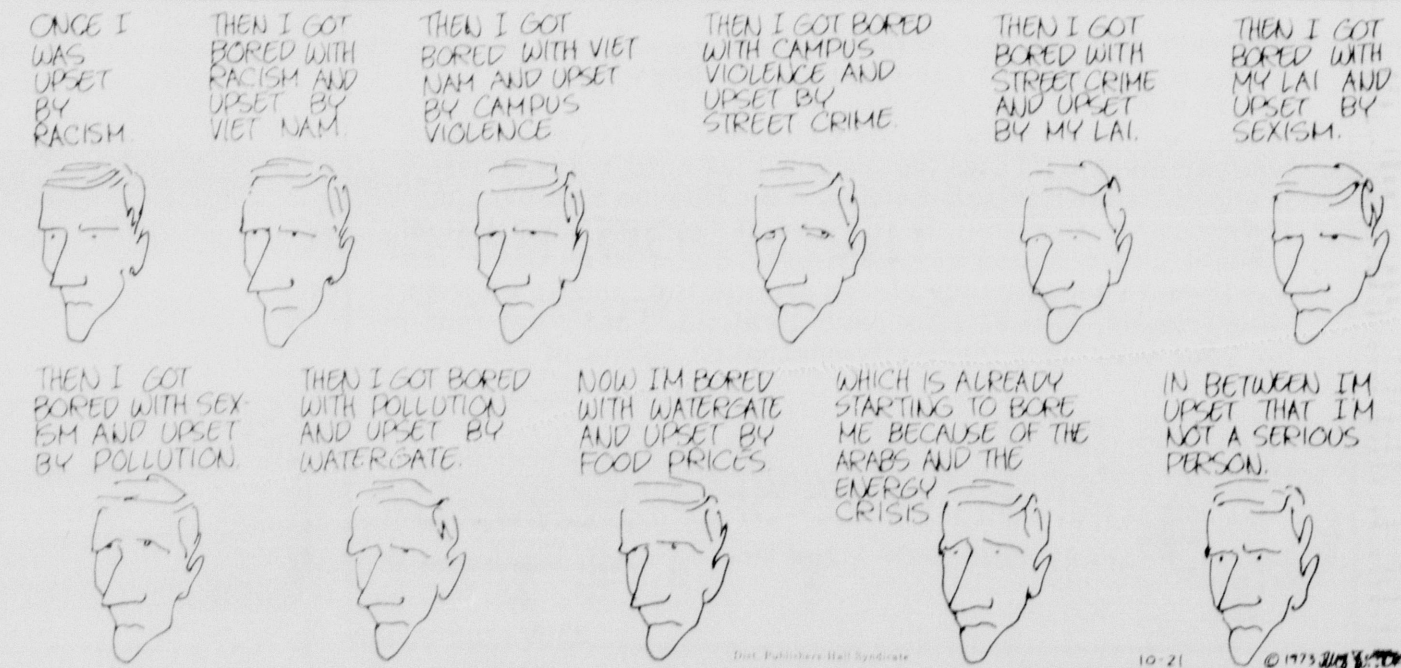 ONCE I
WAS
UPSET
BY
RACISM.
THEN I GOT
BORED WITH
RACISM AND
UPSET BY
VIET NAM.
THEN I GOT
BORED WITH VIET
NAM AND UPSET
BY CAMPUS
VIOLENCE
THEN I GOT BORED
WITH CAMPUS
VIOLENCE AND
UPSET BY
STREET CRIME.
THEN I GOT
BORED WITH
STREET CRIME
AND UPSET
BY MY LAI.
THEN I GOT
BORED WITH
MY LAI AND
UPSET BY
SEXISM.
THEN I GOT
BORED WITH SEX-
ISM AND UPSET
BY POLLUTION.
THEN I GOT BORED
WITH POLLUTION
AND UPSET BY
WATERGATE.
NOW I'M BORED
WITH WATERGATE
AND UPSET BY
FOOD PRICES
WHICH IS ALREADY
STARTING TO BORE
ME BECAUSE OF THE
ARABS AND THE
ENERGY
CRISIS
IN BETWEEN I'M
UPSET THAT I'M
NOT A SERIOUS
PERSON.
Dist. Publishers-Hall Syndicate
10-21
© 1973